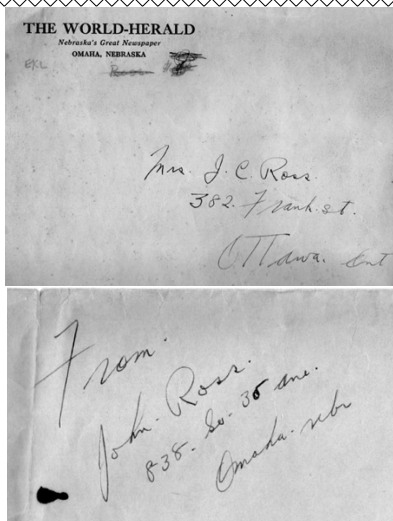 THE WORLD-HERALD
Nebraska's Great Newspaper
OMAHA, NEBRASKA
Mrs. J. C. Ross.
382. Frank. st.
OTTawa. Ont
From.
John. Ross.
838. So. 35 ave.
Omaha. nbr